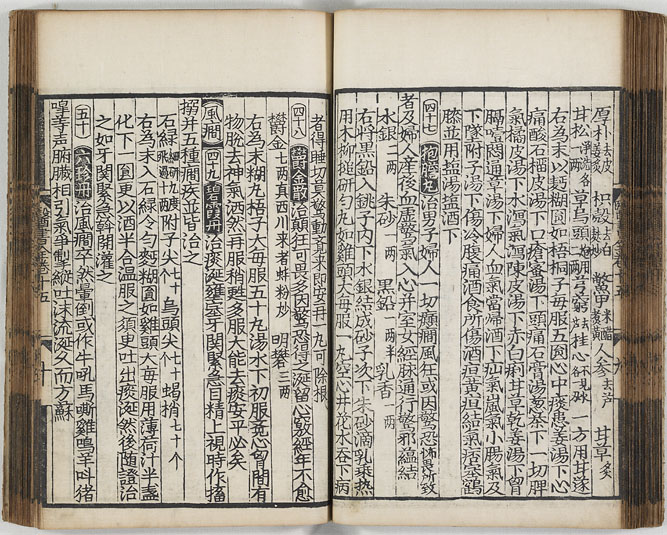 厚朴去皮姜炙 枳殼去白麩炒 鱉甲米醋煮黃 人參去芦 甘草炙
甘松一兩 草烏頭 弓窮去芦 桂心不見火 一方用甘遂
右為末以麪糊圓如梧桐子每服五圓心中痰患姜湯下心
痛酸石榴皮湯下口瘡蜜湯下頭痛石膏湯葱茶下一切脾
氣橘皮湯下水瀉氣瀉陳皮湯下赤白痢甘草乾姜湯下曾
膈噎悶通草湯下婦人血氣當歸酒下疝氣嵐氣小腸氣及
下墜附子湯下傷冷腹痛酒食所傷酒疸黃疸結氣痞塞鶴
膝並用盐湯盐酒下
四十七 抱膽丸 治男子婦人一切癲癇風狂或因驚恐怖畏所致
者及婦人産後血虚驚氣入心并室女經脉通行驚邪蘊結
水銀二兩 朱砂一兩 黑鉛一兩半 乳香一兩
右將黑鉛入銚子内下水銀結成砂子次下朱砂滴乳乗熱
用木柳槌研勻丸如雞頭大每服一丸空心井花水吞下病
者得睡切莫驚動覺来即安再一丸可除根
四十八 鬱金散 治顛狂可畏多因驚恐得之涎留心竅經年不愈
鬱金七兩真西川来者蚌粉炒 明礬三兩
右為末糊丸梧子大每服五十丸湯水下初服竟心胷間有
物脱去神氣洒然再服稍甦多服大能去痰安平必矣
風癇 四十九 碧霞丹 治痰涎壅塞牙関緊急目精上視時作搐
搦并五種癇疾並皆治之
石緑細研九度飛 附子尖七十个 烏頭尖七十个 蝎梢七十个
右為末入石緑令勻麪糊圓如雞頭大每服用薄荷汁半盞
化下一圓更以酒半合温服之須更吐出痰涎然後随證治
之如牙関緊急斡開灌之
五十 六珍丹 治風癇卒然暈倒或作牛吼馬嘶雞鳴羊呌猪
嘷等声腑臓相引氣爭掣縱吐沫流涎久而方蘇